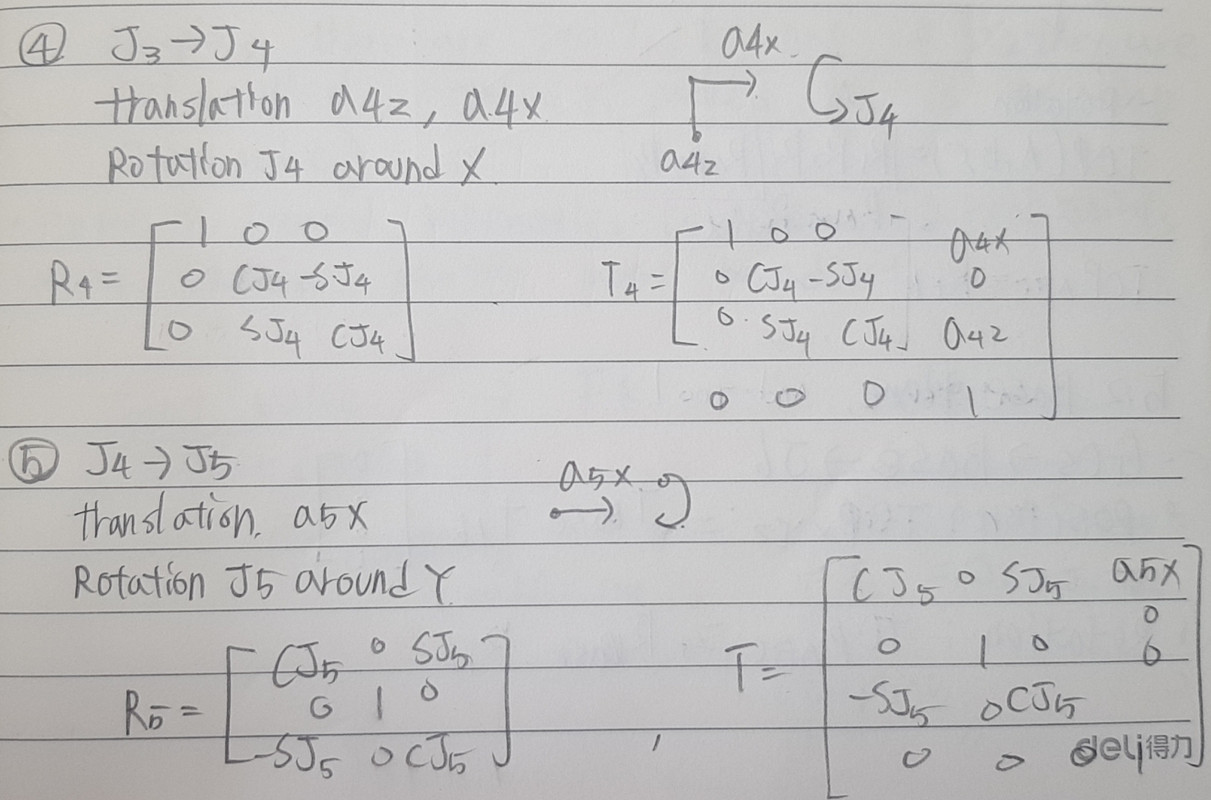 ④ J3→J4
translation a4z, a4x
a4x
J4
a4z
Rotation J4 around X
R4 = [ 1 0 0
0 CJ4 -SJ4
0 SJ4 CJ4 ]
T4 = [ 1 0 0 a4x
0 CJ4 -SJ4 0
0 SJ4 CJ4 a4z
0 0 0 1 ]
⑤ J4→J5
translation. a5x
a5x
Rotation J5 around Y
R5 = [ CJ5 0 SJ5
0 1 0
-SJ5 0 CJ5 ]
T = [ CJ5 0 SJ5 a5x
0 1 0 0
-SJ5 0 CJ5 0
0 0 0
deli得力